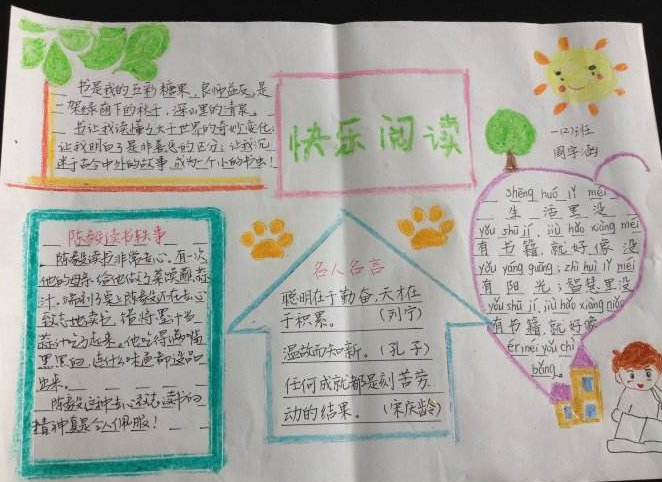 书是我的五彩糖果、良师益友,是
一架绿荫下的秋千,深山里的清泉。
书让我读懂了大千世界的奇妙变化;
让我明白了是非善恶的区分;让我沉
迷于古今中外的故事,成为一个小的书虫!
快乐阅读
一(2)班
周宇涵
陈毅读书轶事
陈毅读书非常专心,有一次
他的母亲给他做了菜馍蘸蒜
汁。端到书桌上陈毅还在专心
致志地读书,错将墨汁当
蒜汁吃了起来。他吃得满嘴
黑黑的,连什么味道都没品
出来。
陈毅这种专心致志读书的
精神真是令人佩服!
名人名言
聪明在于勤奋,天才在
于积累。 (列宁)
温故而知新。(孔子)
任何成就都是刻苦劳
动的结果。(宋庆龄)
shēng huó lǐ méi
生活里没
yǒu shū jí, jiù hǎo xiàng méi
有书籍,就好像没
yǒu yáng guāng; zhì huì lǐ méi
有阳光;智慧里没
yǒu shū jí, jiù hǎo xiàng niǎo
有书籍,就好像
ér méi yǒu chì
bǎng。